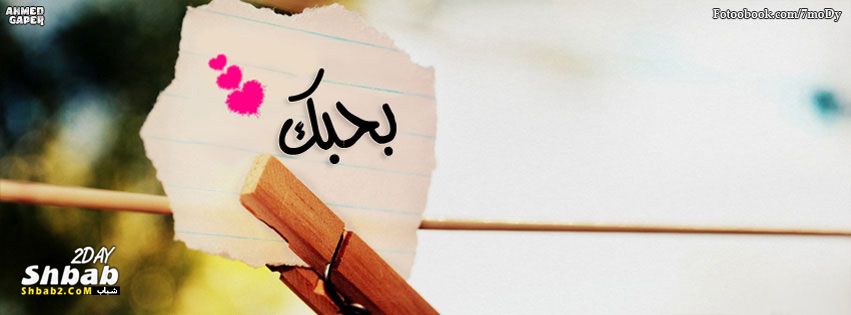 AHMED
GABER
Fotoobook.com/7moDy
بحبك
2DAY
Shbab
Shbab2.CoM شباب